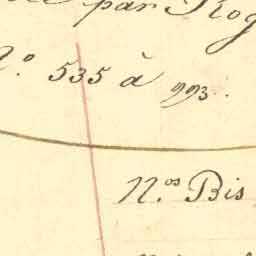 par Rog
N.° 535 à 993.
N.os Bis